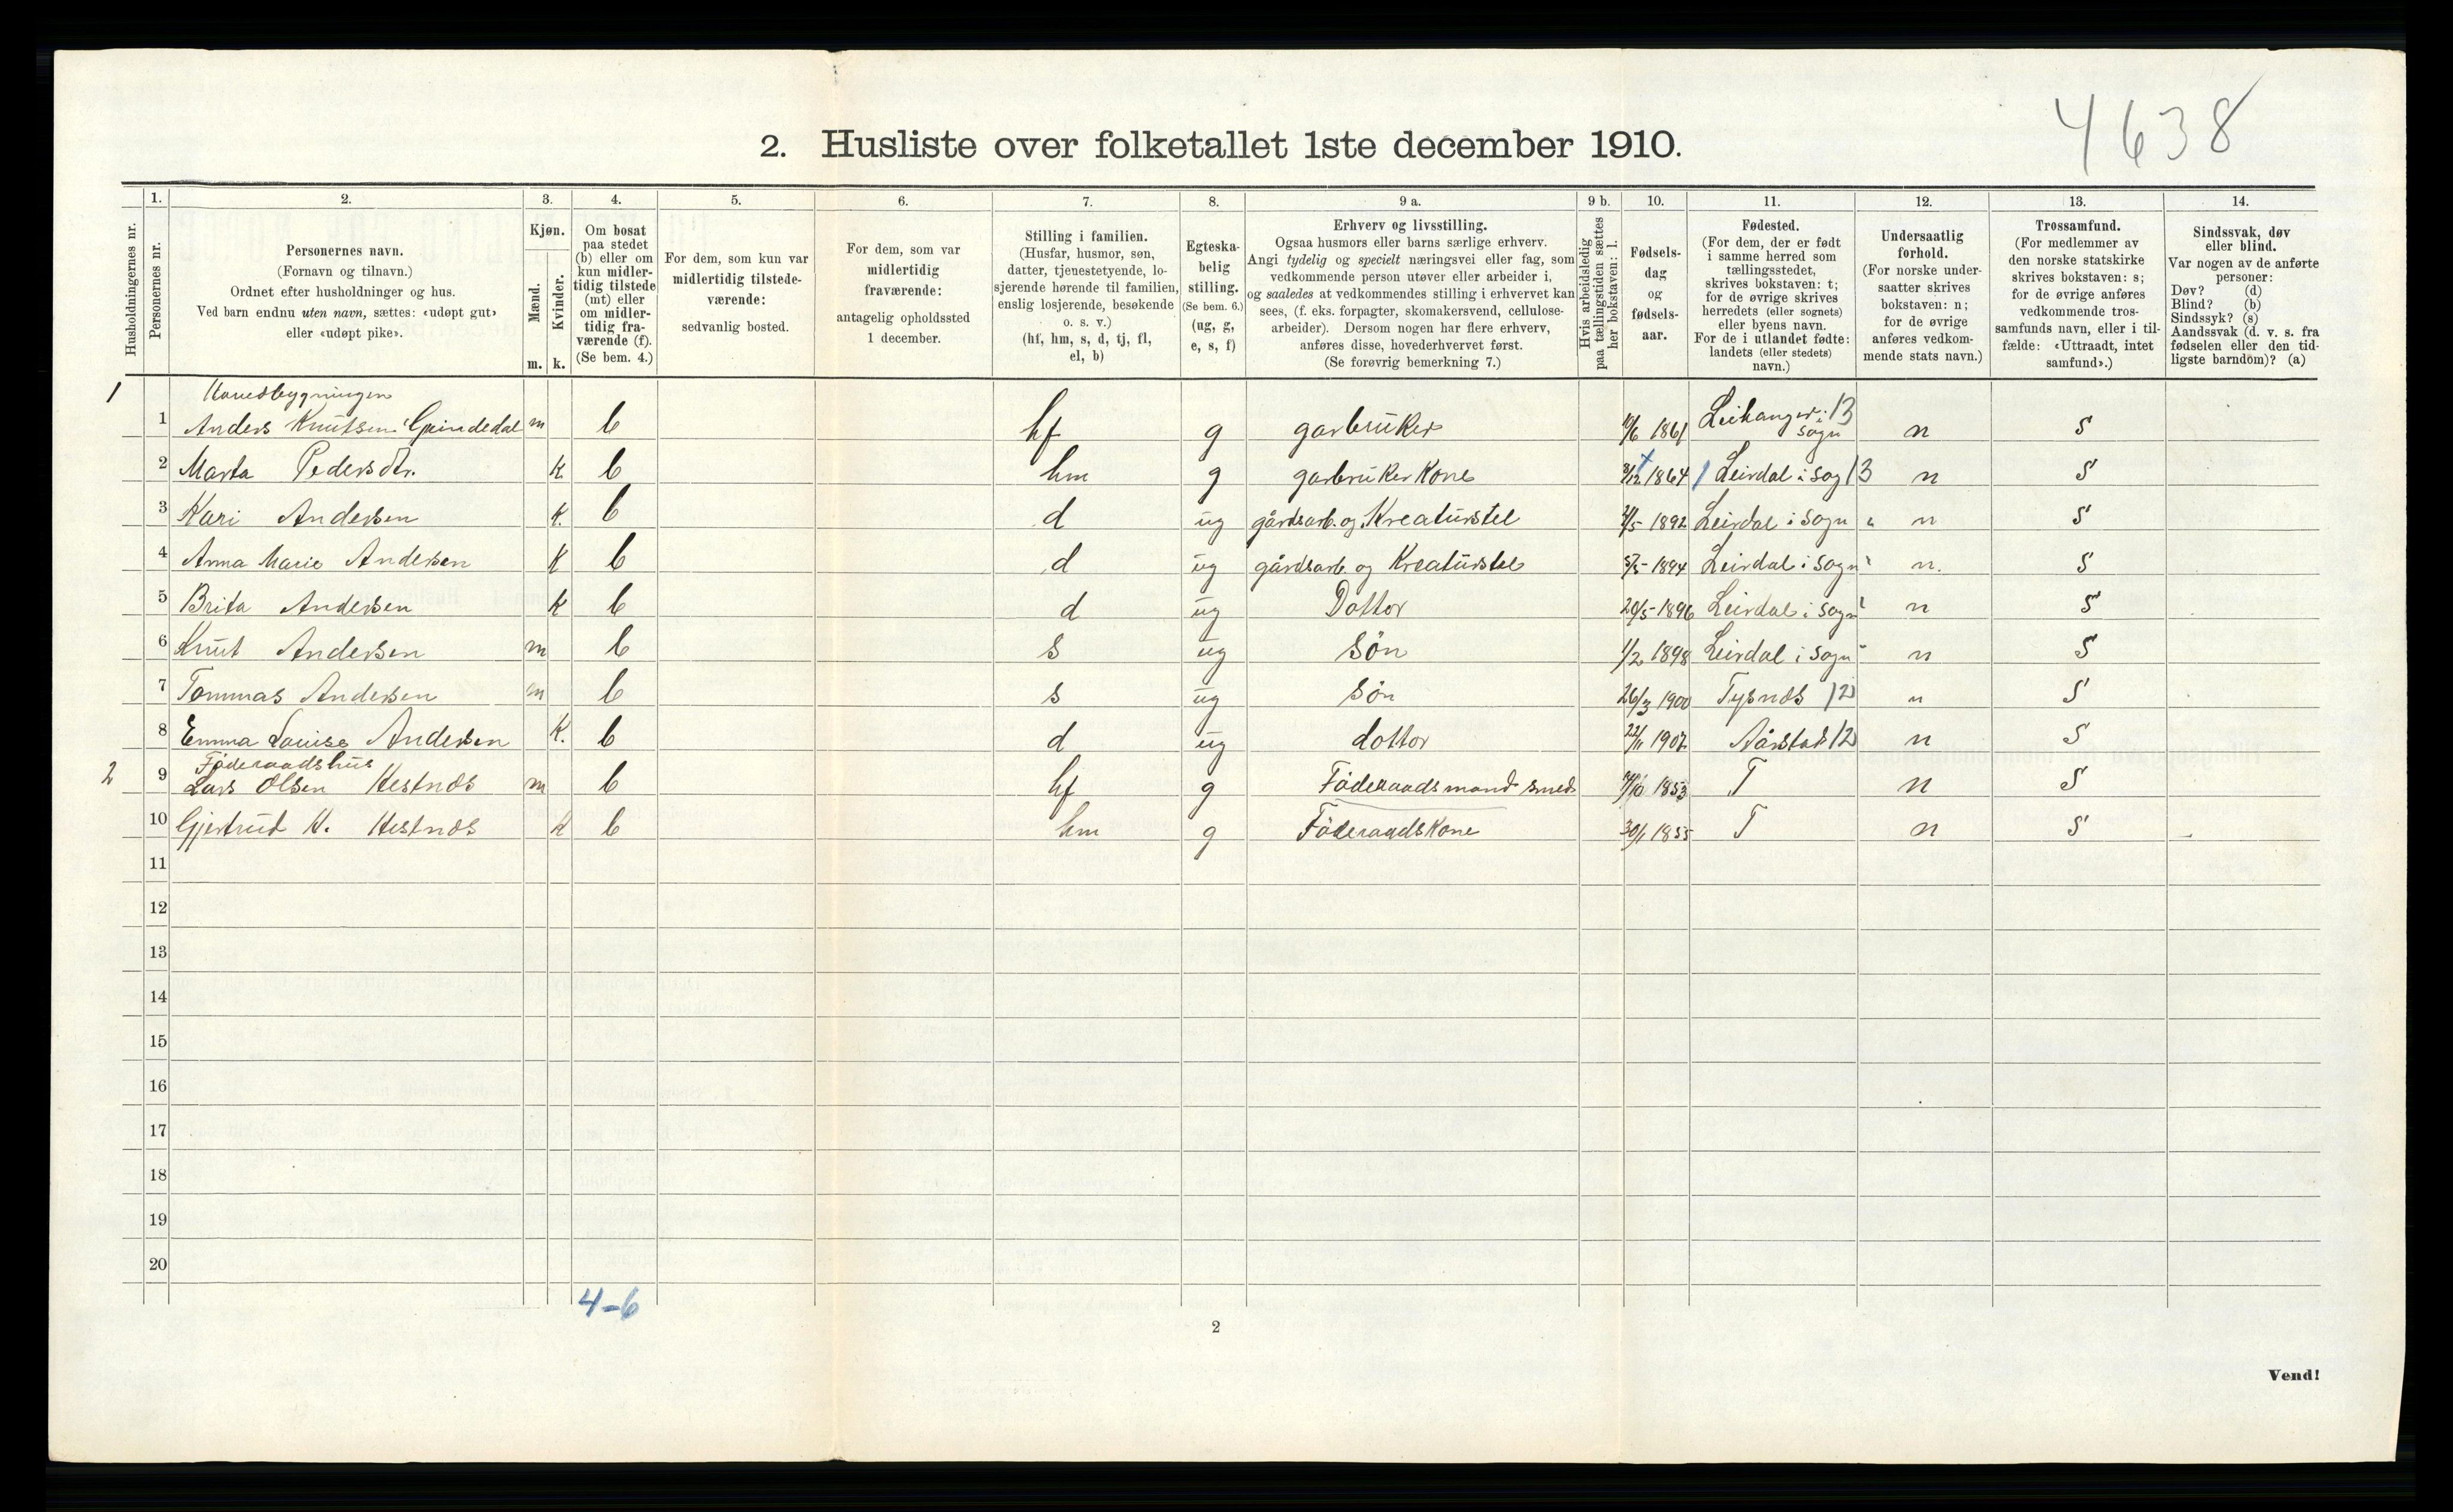 4638
2. Husliste over folketallet 1ste december 1910.
Husholdningernes nr.
1.
Personernes nr.
2.
Personernes navn.
(Fornavn og tilnavn.)
Ordnet efter husholdninger og hus.
Ved barn endnu uten navn, sættes: «udøpt gut»
eller «udøpt pike».
3.
Kjøn.
Mænd.
Kvinder.
m. k.
4.
Om bosat
paa stedet
(b) eller om
kun midler-
tidig tilstede
(mt) eller
om midler-
tidig fra-
værende (f).
(Se bem. 4.)
5.
For dem, som kun var
midlertidig tilstede-
værende:
sedvanlig bosted.
6.
For dem, som var
midlertidig
fraværende:
antagelig opholdssted
1 december.
7.
Stilling i familien.
(Husfar, husmor, søn,
datter, tjenestetyende, lo-
sjerende hørende til familien,
enslig losjerende, besøkende
o. s. v.)
(hf, hm, s, d, tj, fl,
el, b)
8.
Egteska-
belig
stilling.
(Se bem. 6.)
(ug, g,
e, s, f)
9 a.
Erhverv og livsstilling.
Ogsaa husmors eller barns særlige erhverv.
Angi tydelig og specielt næringsvei eller fag, som
vedkommende person utøver eller arbeider i,
og saaledes at vedkommendes stilling i erhvervet kan
sees, (f. eks. forpagter, skomakersvend, cellulose-
arbeider). Dersom nogen har flere erhverv,
anføres disse, hovederhvervet først.
(Se forøvrig bemerkning 7.)
9 b.
Hvis arbeidsledig
paa tællingstiden sættes
her bokstaven: l.
10.
Fødsels-
dag
og
fødsels-
aar.
11.
Fødested.
(For dem, der er født
i samme herred som
tællingsstedet,
skrives bokstaven: t;
for de øvrige skrives
herredets (eller sognets)
eller byens navn.
For de i utlandet fødte:
landets (eller stedets)
navn.)
12.
Undersaatlig
forhold.
(For norske under-
saatter skrives
bokstaven: n;
for de øvrige
anføres vedkom-
mende stats navn.)
13.
Trossamfund.
(For medlemmer av
den norske statskirke
skrives bokstaven: s;
for de øvrige anføres
vedkommende tros-
samfunds navn, eller i til-
fælde: «Uttraadt, intet
samfund».)
14.
Sindssvak, døv
eller blind.
Var nogen av de anførte
personer:
Døv? (d)
Blind? (b)
Sindssyk? (s)
Aandssvak (d. v. s. fra
fødselen eller den tid-
ligste barndom)? (a)
1 Hovedbygningen
1 Anders Knutsen Grindedal m b hf g garbruker 1861 Leikanger i Sogn 13 n S
2 Marta Pedersdtr. K b hm g garbruker Kone 1864 Leirdal i Sog 13 n S
3 Kari Andersen K. b d ug gårdsarb. og Kreaturstel 1892 Leirdal i Sogn " n S
4 Anna Marie Andersen K b d ug gårdsarb. og Kreaturstel 1894 Leirdal i Sogn " n. S
5 Brita Andersen K b d ug Dotter 20/5-1896 Leirdal i Sogn " n S
6 Knut Andersen m b s ug Sön 1/2 1898 Leirdal i Sogn " n S
7 Tommas Andersen m b s ug Sön 26/3 1900 Tysnæs 12 n S
8 Emma Louise Andersen K. b d ug dotter 22/11 1902 Aarstad 12 n S
2 Föderaadshus
9 Lars Olsen Hestnæs m b hf g Föderaadsmand smed 1853 T n S
10 Gjertrud K. Hestnæs k b hm g Föderaadskone 30/1 1855 T n S
11
12
13
14
15
16
17
18
19
20
4-6
2
Vend!